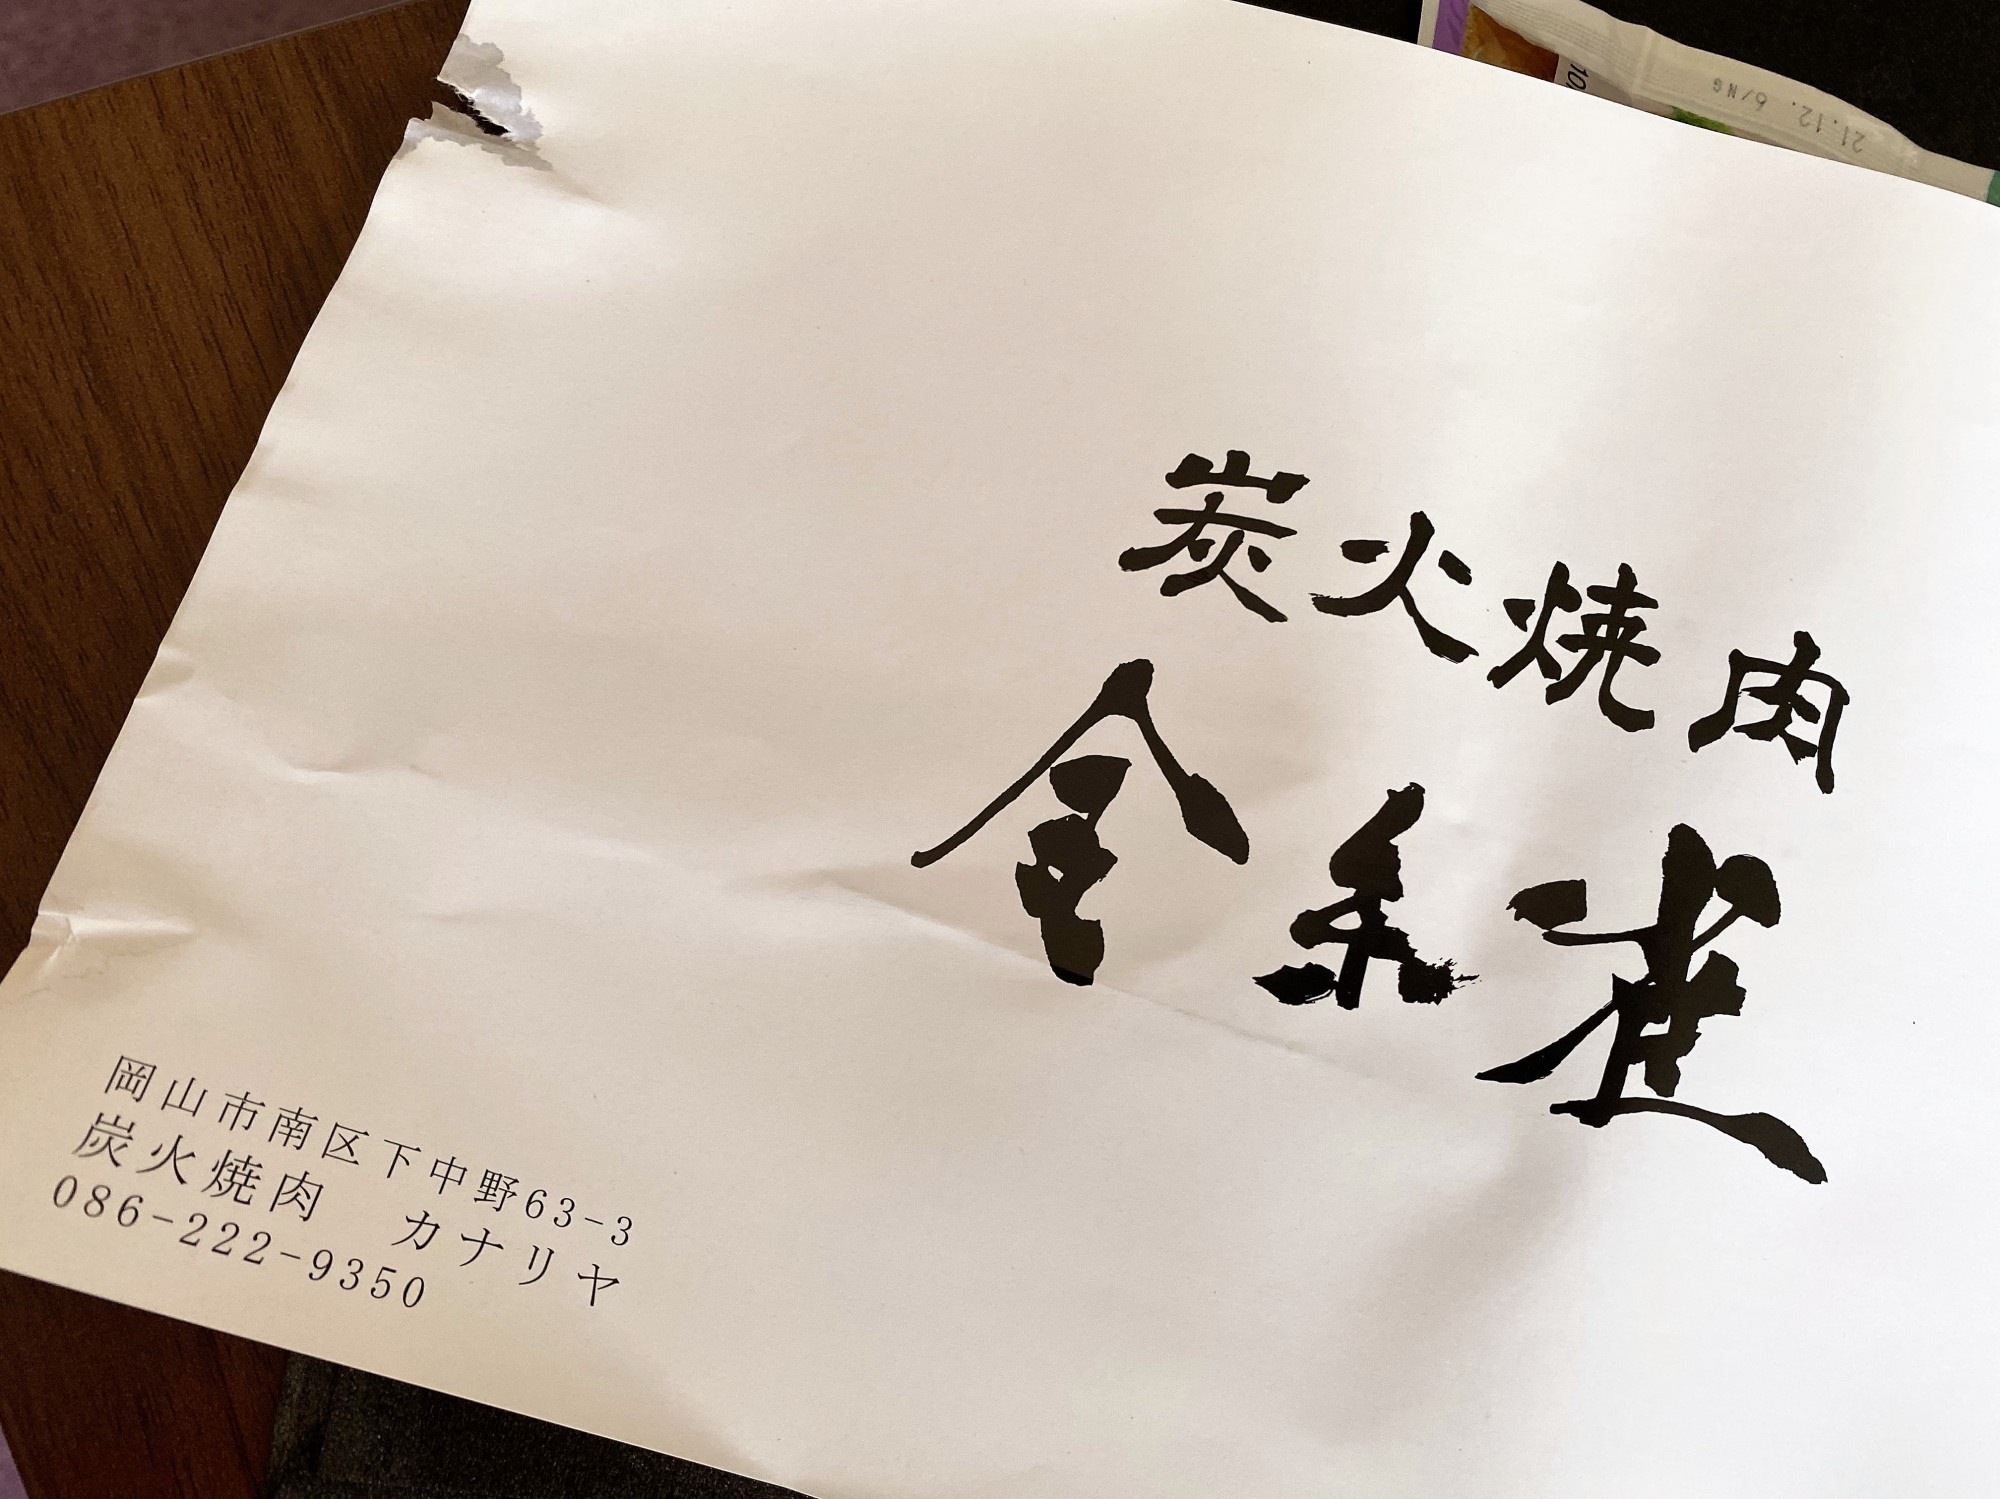 炭火焼肉
金糸雀
岡山市南区下中野63-3
炭火焼肉　カナリヤ
086-222-9350
21.12. 6/NG
10